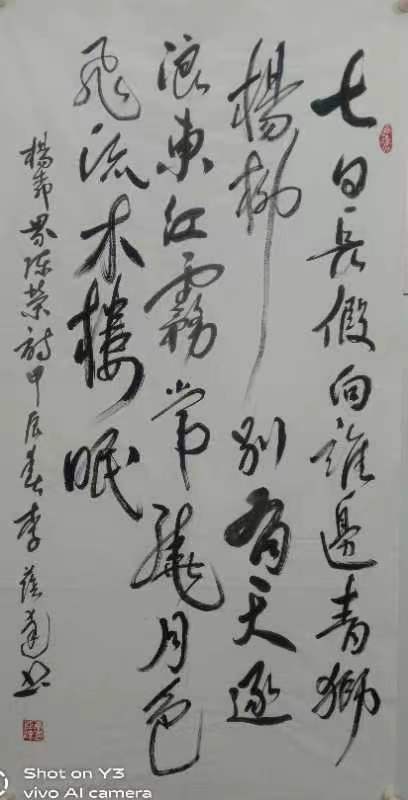 七日長假向誰邊青獅
楊柳別有天逐
浪東江霧常繞月色
飛流木樓眠
楊 界陈荣詩甲辰春李蔭 書
Shot on Y3
vivo AI camera